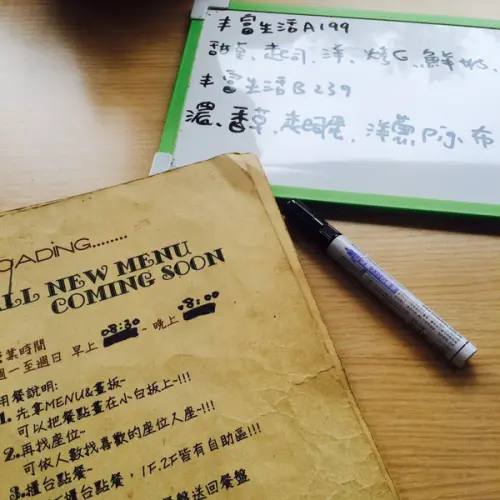 丰富生活A199
甜
丰富生活B239
濃、香草、起司蛋、洋蔥Pig、布
OADING........
ALL NEW MENU
COMING SOON
業時間
週一至週日 早上 08:30 ~ 晚上 8:00
用餐說明:
1. 先拿MENU&畫板~
可以把餐點畫在小白板上~!!!
2.再找座位~
可依人數找喜歡的座位入座~!!!
3.櫃台點餐~
櫃台點餐，1F.2F皆有自助區!!!
送回餐盤